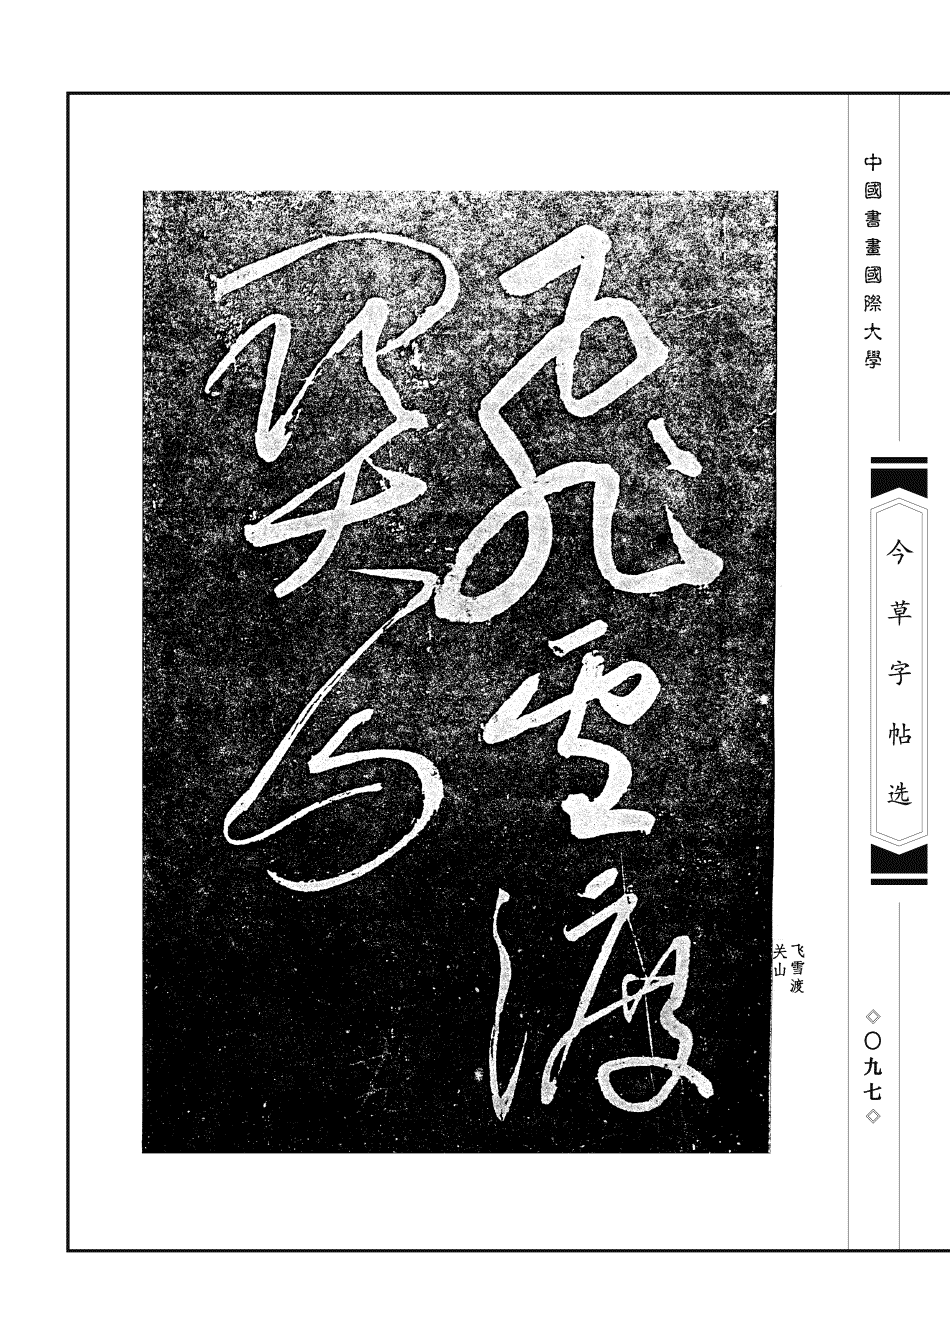 中國書畫國際大學
今草字帖选
〇九七
飞雪渡
关山
飛雪渡
關山